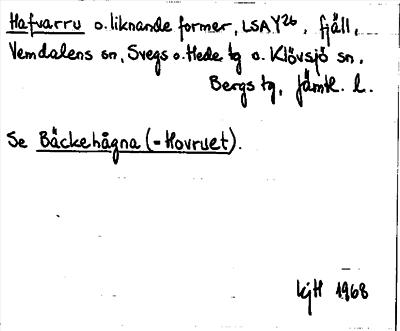 Hafvarru o. liknande former, LSA Y26, fjäll,
Vemdalens sn, Svegs o. Hede tg o. Klövsjö sn.
Bergs tg, Jämtl. l.
Se Bäckehågna (-Hovruet).
KjH 1968